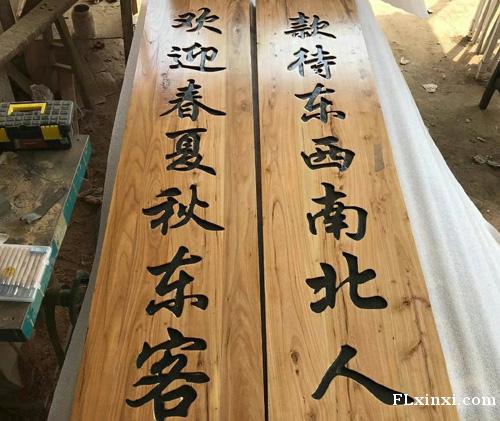 欢迎春夏秋东客
款待东西南北人
FLxinxi.com